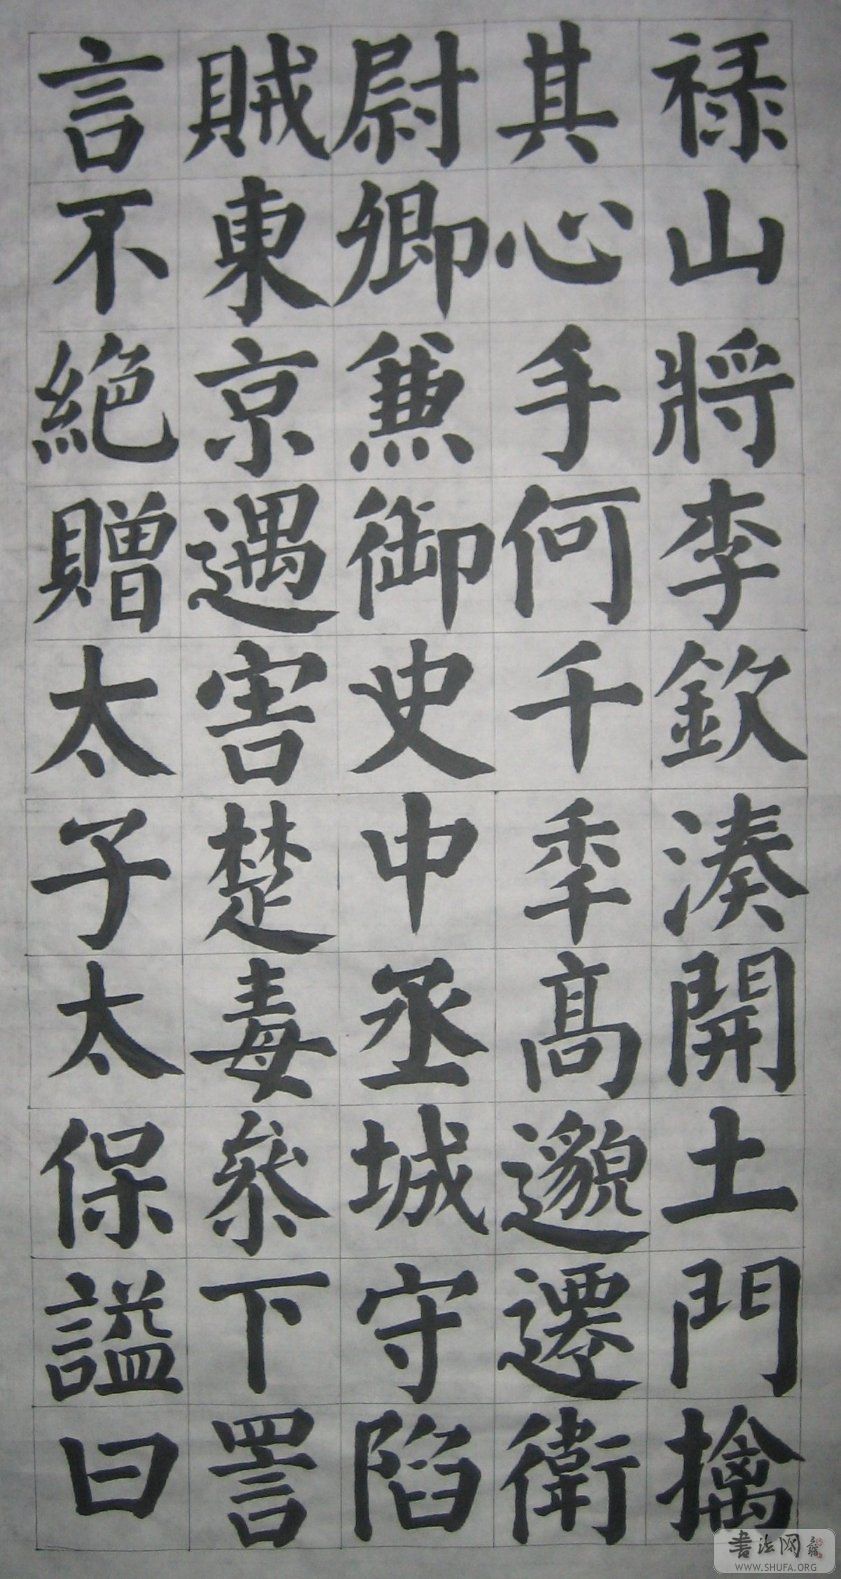 禄山將李欽湊開土門擒
其心手何千秊高邈遷衛
尉卿兼御史中丞城守陷
賊東京遇害楚毒叅下詈
言不絕贈太子太保謚曰
書法网
WWW.SHUFA.ORG